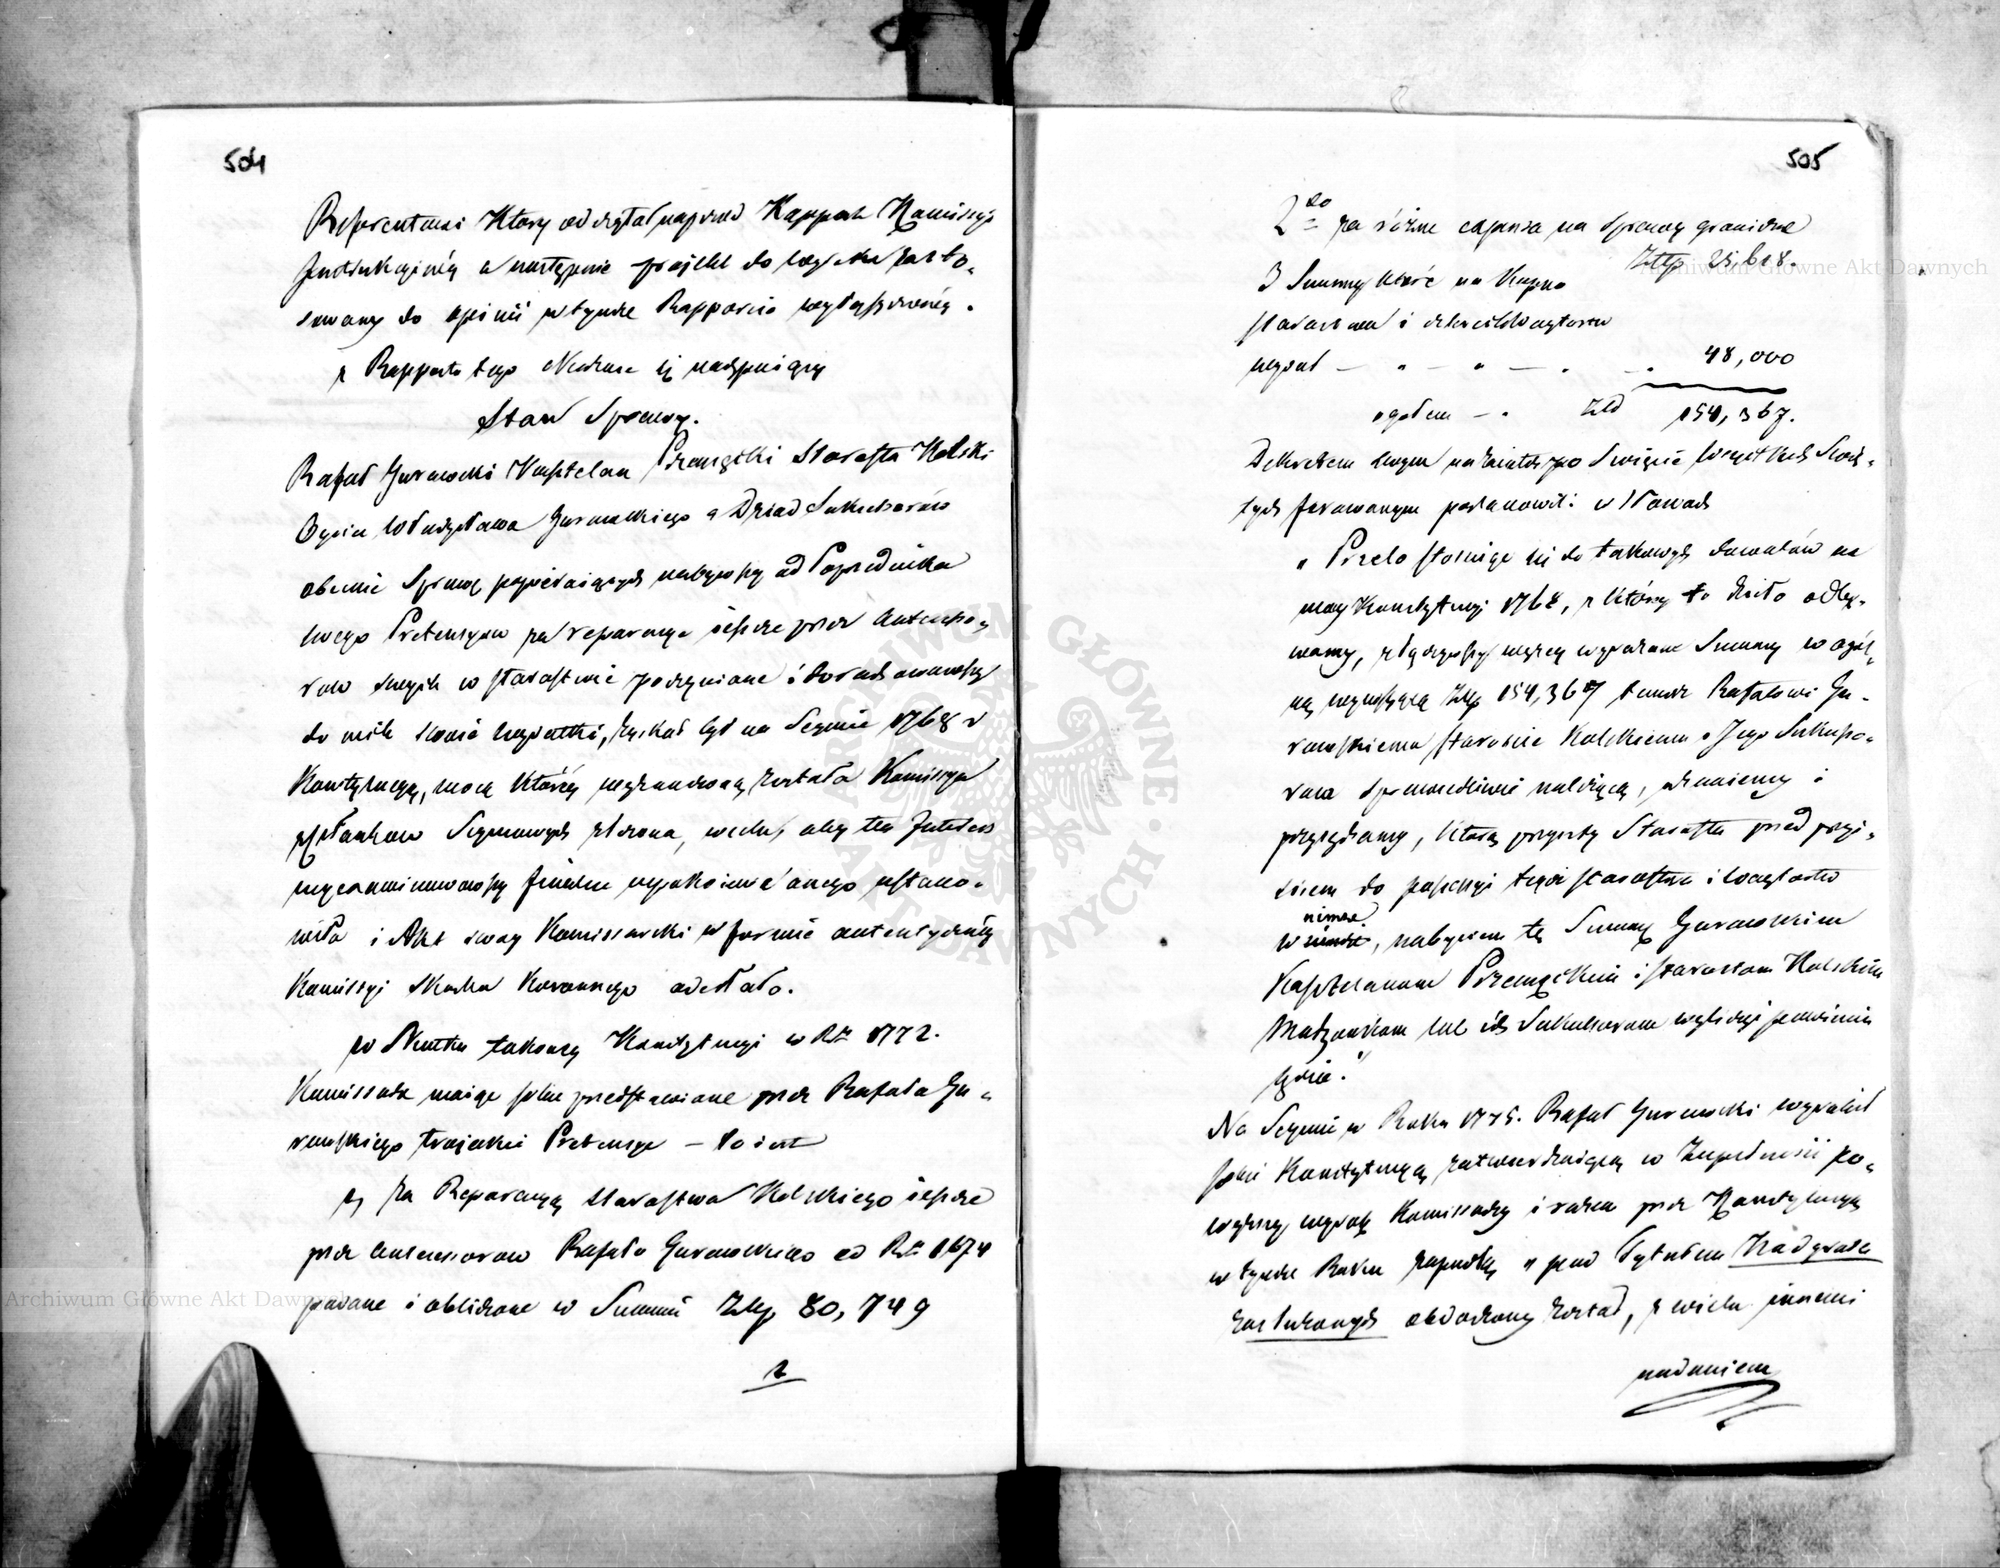 504
Referentowi Który odczytał naprzód Rapport Kommissyi
Instrukcyjnéy a następnie projekt do wyroku zasto-
sowany do opinii w tymże Rapporcie wyłuszczonéy.
z Rapportu tego okazuie się następuiący
Stan Sprawy.
Rafał Gurowski Kasztelan Przemęcki Starosta Kolski
Oyciec Władysława Gurowskiego a Dziad Sukcessorów
obecnie Sprawę popieraiących nabywszy od Poprzednika
swego Pretensyow za reparacye ieszcze przez Antecesso-
row swych w starostwie poczynione i dorachowawszy
do nich swoie wypadki, zyskał był na Seymie 1768 r
Konstytucyę, mocą któréy wyznaczoną została Kommissya
z Członkow Seymowych złożona, w celu, aby ten Interes
wyexaminowawszy finalne uspokoienie onego ustano-
wiła i Akt swoy Kommissarski w formie autentycznéy
Kommissyi Skarbu Koronnego odesłała.
w Skutku takowéy Konstytucyi w R<sup>u</sup> 1772.
Kommissarze maiąc sobie przedstawione przez Rafała Gu-
rowskiego trojakie Pretensye – to iest
1, za Reparacyą Starostwa Kolskiego ieszcze
przez Antecessorow Rafała Gurowskiego od R<sup>u</sup> 1674
podane i obliczone w Summie Złtp 80,749
2
505
2<sup>do</sup> za różne expensa na sprawy graniczne
Złtp 25,618.
3 Summy które na Kupno
starostwa i
wydał – " – " – " – " 48,000
ogółem – " Złt 154,367.
Dekretem swym nazaiutrz po Święcie Wszystkich Świę-
tych ferowanym postanowili w słowach
" Przeto stosuiąc się do takowych dowodów na
mocy Konstytucyi 1768, z któréy to dzieło odby-
wamy, złączywszy wyżéy wyrażone Summy w ogól-
ną wynoszącą Złtp 154,367 temuż Rafałowi Gu-
rowskiemu Staroście Kolskiemu i Jego Sukcesso-
rom sprawiedliwie należącą, uznaiemy i
przysądzamy, którą przyszły Starosta przed przyi-
ściem do possessyi tegoż starostwa i
nimże
, nabyciem tę Summę Gurowskim
Kasztelanom Przemęckim i starostom Kolskim
Małżonkom lub ich Sukcessorom wyliczyć powinien
będzie."
Na Seymie w Roku 1775. Rafał Gurowski wyrobił
sobie Konstytucyą zatwierdzaiącą w zupełności po-
wyższy wyrok Kommissarzy i razem przez Konstytucyą
w tymże Roku zapadłą " pod Tytułem Nadgroda
zasłużonych obdarzony został, z wielu innemi
nadaniem